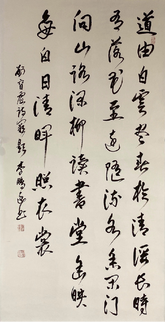 道由白雲盡春於清溪長時
有落花至遠隨流水香閒門
向山路深柳讀書堂幽映
每白日清晖照衣裳